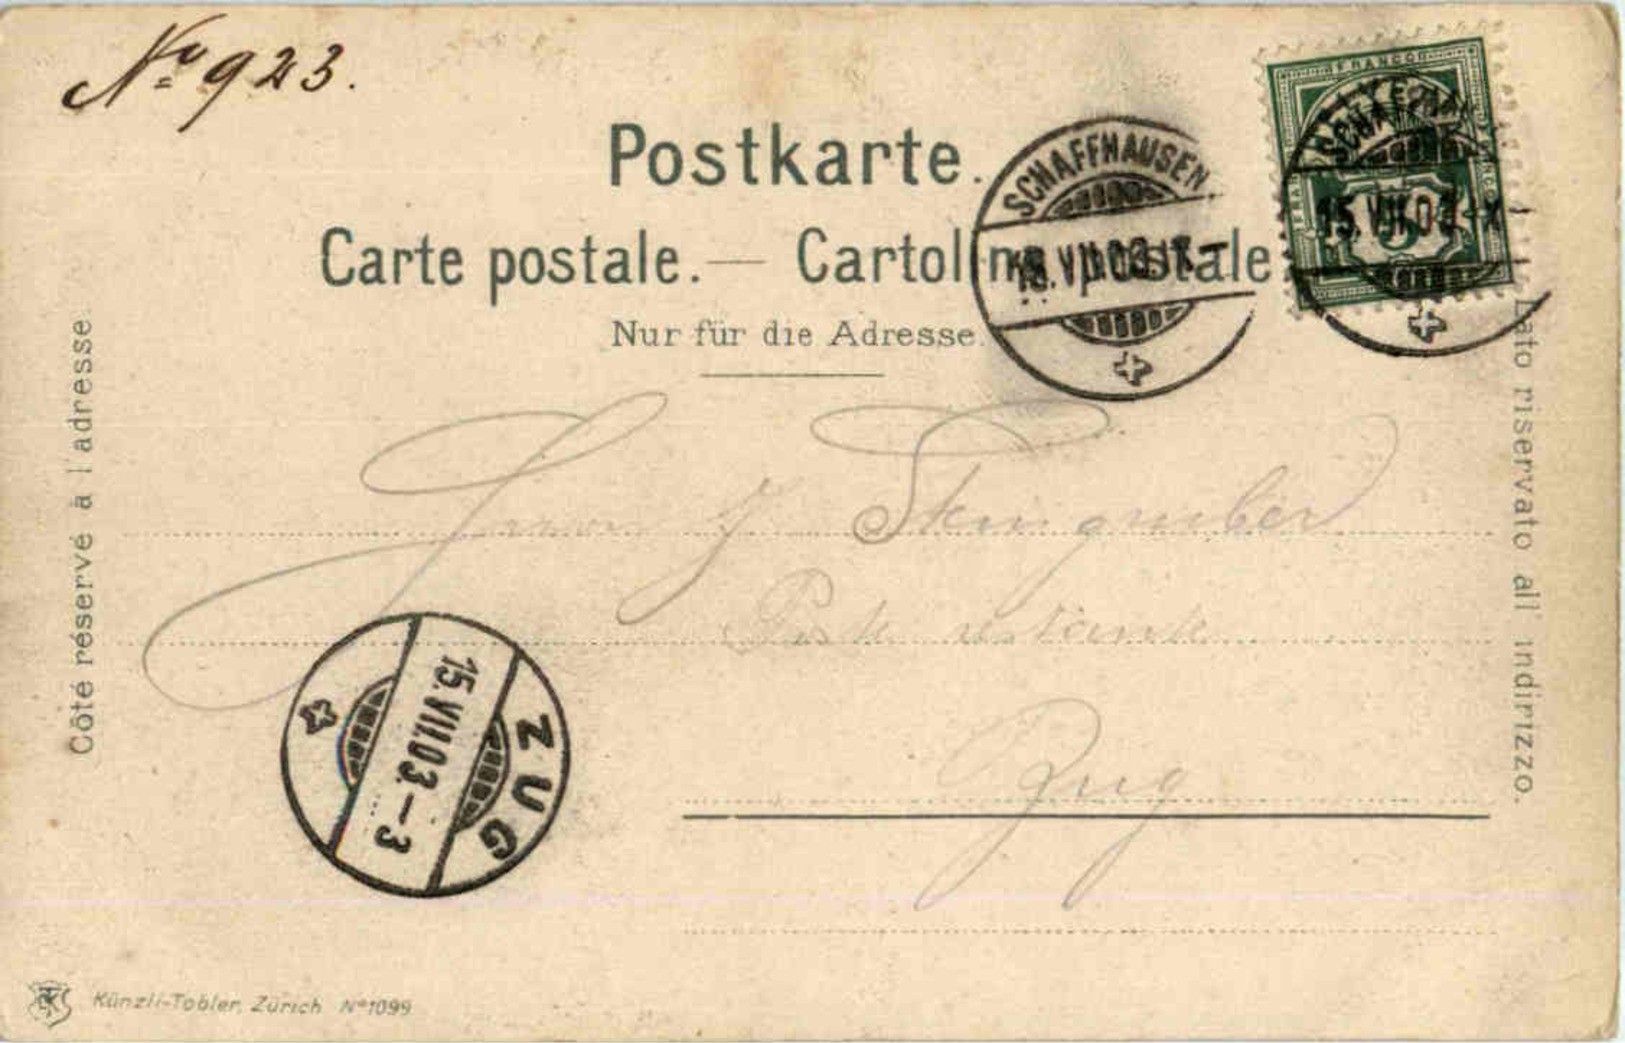 No 923.
Postkarte.
Carte postale. — Cartolina postale
Nur für die Adresse.
Côté réservé à l'adresse.
Lato riservato all' indirizzo.
FRANCO
SCHAFFHAUSEN
VII.03.-X-
SCHAFFHAUSEN
15.VII.03.-X
5
Herrn J. Steingruber
Poste restante
Zug
ZUG
15.VII.03.-3
Künzli-Tobler, Zürich No 1099